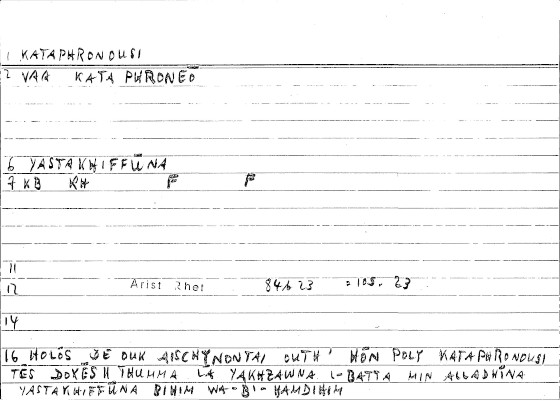 1 KATAPHRONOUSI
2 VAA KATA PHRONEŌ
6 YASTAKHIFFŪNA
7 KB KH F F
11
12 Arist Rhet 84b 23 = 105. 23
14
16 HOLŌS DE OUK AISCHYNONTAI OUTH' HŌN POLY KATAPHRONOUSI
TĒS DOXĒS H THUMMA LĀ YAKHZAWNA L-BATTA MIN ALLADHĪNA
YASTAKHIFFŪNA BIHIM WA-BI-HAMDIHIM